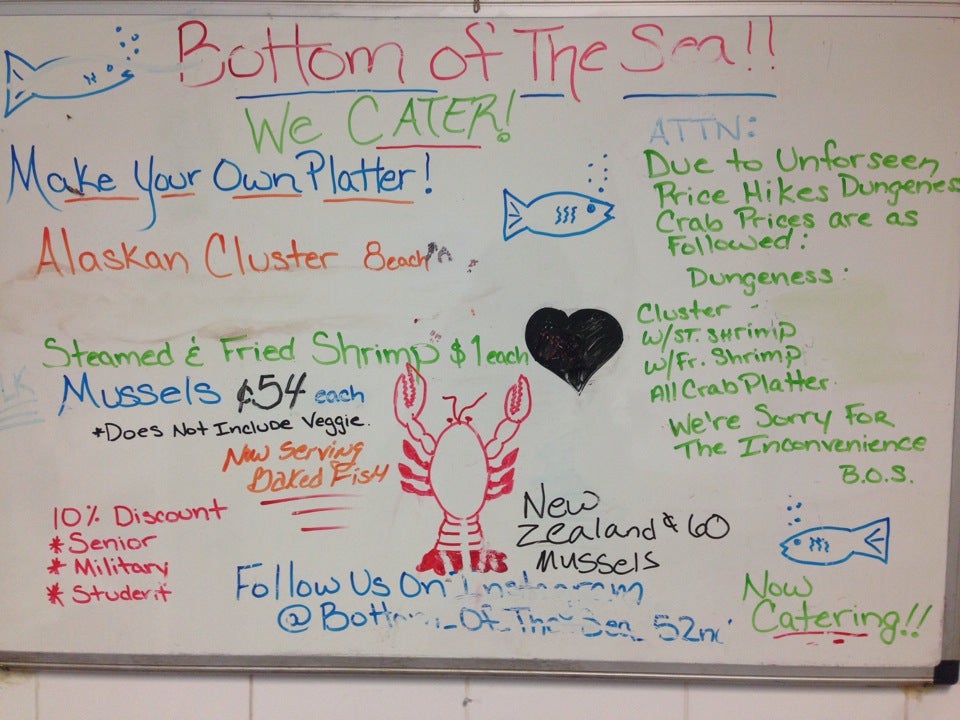 Bottom of The Sea!!
We CATER!
Make Your Own Platter!
Alaskan Cluster 8each
Steamed & Fried Shrimp $1each
Mussels ¢54 each
*Does Not Include Veggie.
Now Serving
Baked Fish
10% Discount
* Senior
* Military
* Student
Follow Us On Instagram
@Bottom_Of_The_Sea_52nd
New
Zealand ¢60
Mussels
ATTN:
Due to Unforseen
Price Hikes Dungeness
Crab Prices are as
Followed:
Dungeness:
Cluster
W/ST. SHrimp
W/Fr. Shrimp
All Crab Platter
We're Sorry For
The Inconvenience
B.O.S.
Now
Catering!!